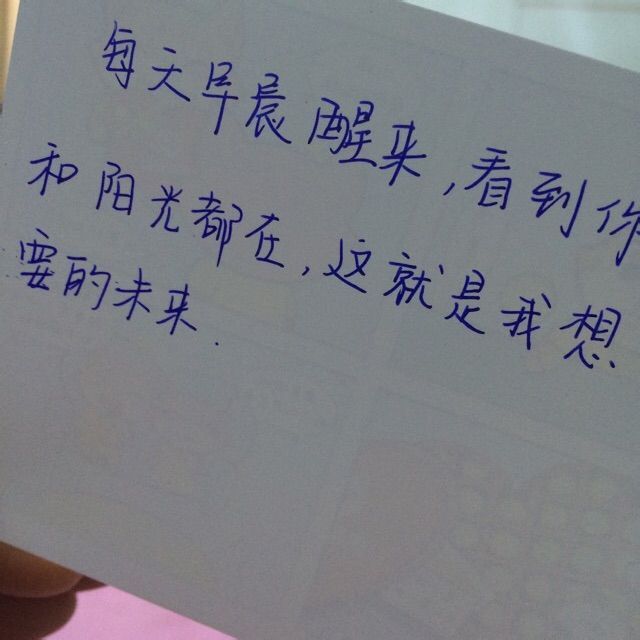 每天早晨醒来,看到你
和阳光都在,这就是我想
要的未来.